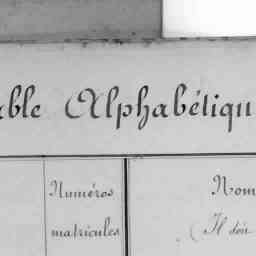 able Alphabétiqu
Numéros
matricules
Nom
Il doi